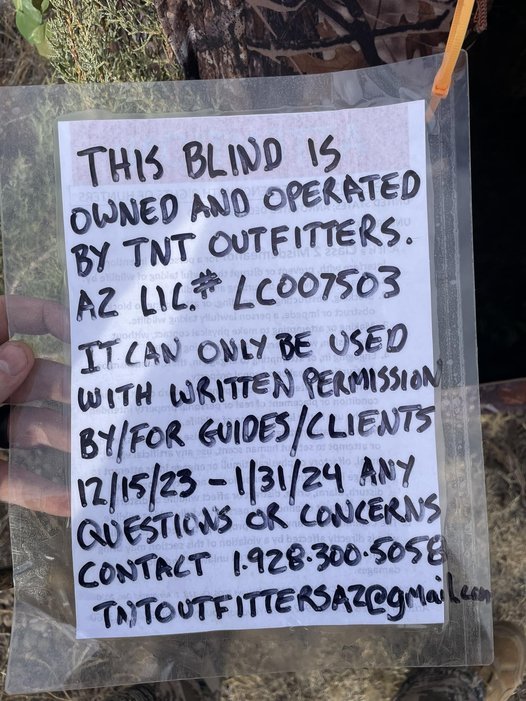 THIS BLIND IS
OWNED AND OPERATED
BY TNT OUTFITTERS.
AZ LIC.# LC007503
IT CAN ONLY BE USED
WITH WRITTEN PERMISSION
BY/FOR GUIDES/CLIENTS
12/15/23 - 1/31/24 ANY
QUESTIONS OR CONCERNS
CONTACT 1.928.300.5058
TNTOUTFITTERSAZ@gmail.com